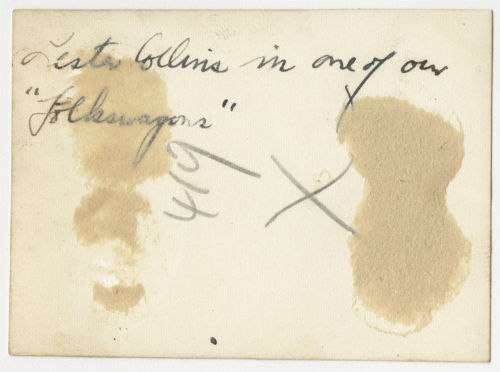 Lester Collins in one of our
"Folkswagons"
419
X